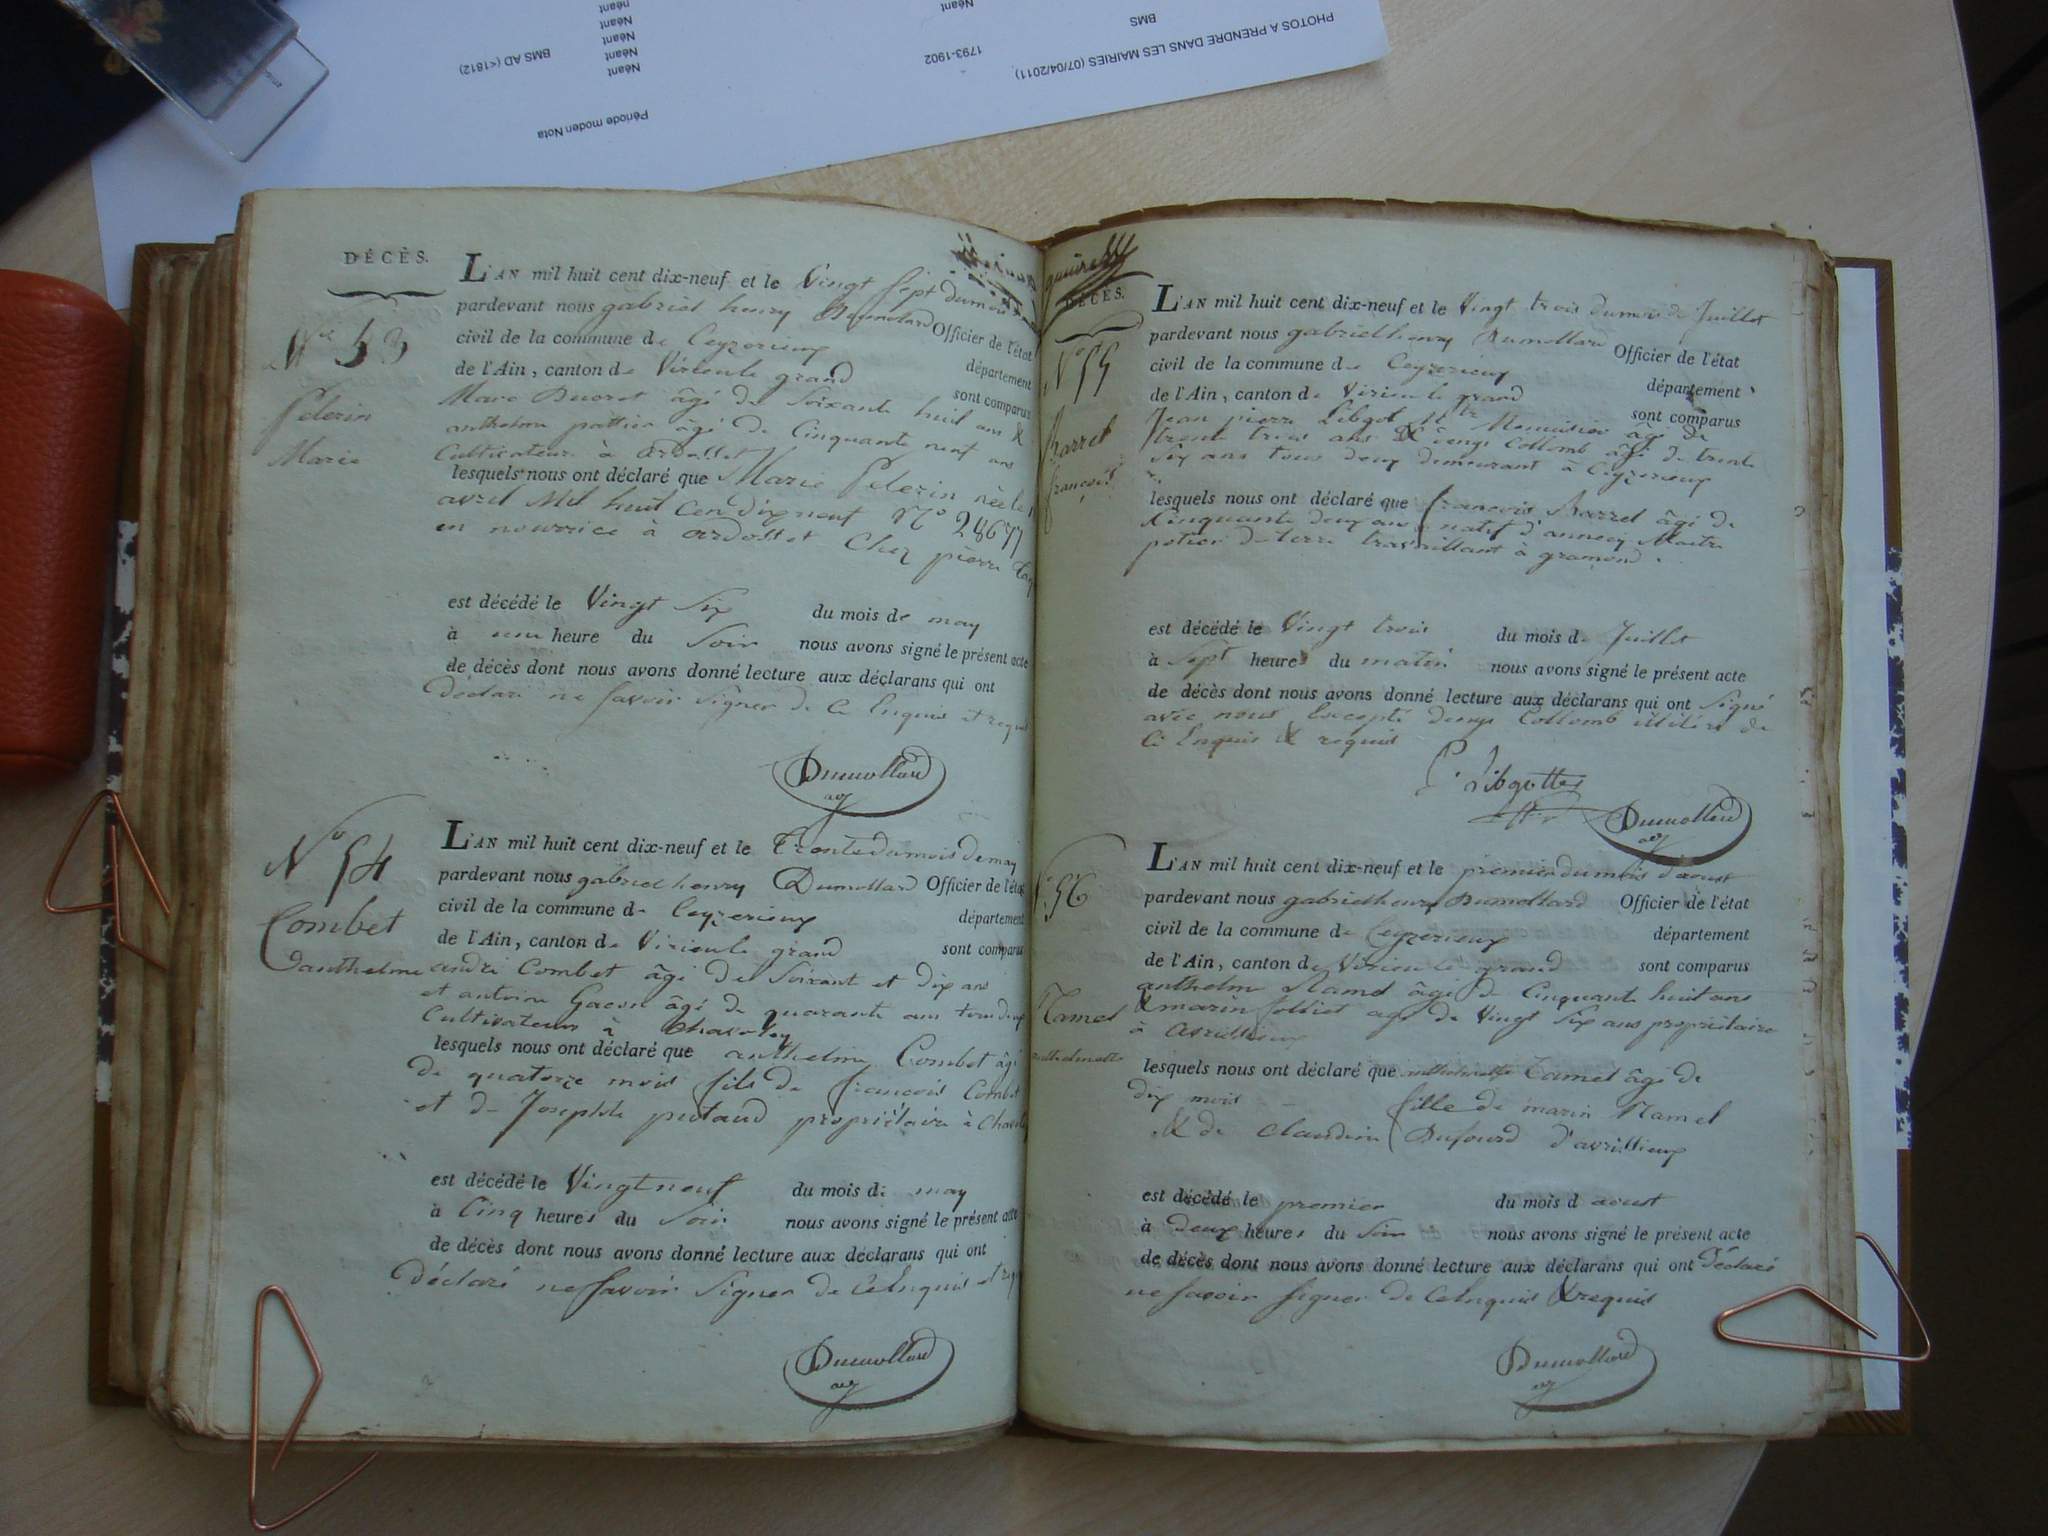 PHOTOS A PRENDRE DANS LES MAIRIES (07/04/2011)
BMS
Néant
1793-1902
Néant
Néant
Néant
Néant
BMS AD (<1812)
Période moden Nota
DÉCÈS.
L'AN mil huit cent dix-neuf et le Vingt Sept du mois
pardevant nous gabriel henry Dumollard Officier de l'état
civil de la commune de Ceyzerieux département
de l'Ain, canton de Virieu le grand sont comparus
Marc Ducret âgé de Soixante huit ans &
anthelme pattier âgé de Cinquante neuf ans
Cultivateurs à ardosset
lesquels nous ont déclaré que Marie Pelerin née le
avril Mil huit Cent dix neuf N° 28677
en nourrice à ardosset Chez pierre
est décédé le Vingt Six du mois de may
à une heure du Soir nous avons signé le présent acte
de décès dont nous avons donné lecture aux déclarans qui ont
Déclaré ne Savoir Signer de Ce Enquis et requis
Dumollard
N° 53
Pelerin
Marie
N° 54
Combet
anthelme
L'AN mil huit cent dix-neuf et le Trente du mois de may
pardevant nous gabriel henry Dumollard Officier de l'état
civil de la commune de Ceyzerieux département
de l'Ain, canton de Virieu le grand sont comparus
andré Combet âgé de Soixant et dix ans
et antoine Gacon âgé de quarante ans tous deux
Cultivateurs à Chavoley
lesquels nous ont déclaré que anthelme Combet âgé
de quatorze mois fils de françois Combet
et de Josephte putaud propriétaire à Chavoley
est décédé le Vingt neuf du mois de may
à Cinq heures du Soir nous avons signé le présent acte
de décès dont nous avons donné lecture aux déclarans qui ont
Déclaré ne Savoir Signer de Ce Enquis et
Dumollard
DÉCÈS.
N° 55
Barret
françois
L'AN mil huit cent dix-neuf et le Vingt trois du mois de Juillet
pardevant nous gabriel henry Dumollard Officier de l'état
civil de la commune de Ceyzerieux département
de l'Ain, canton de Virieu le grand sont comparus
Jean pierre Libgot Mtre Menuisier âgé de
trente trois ans & Collomb âgé de trente
Six ans tous deux demeurant à Ceyzerieux
lesquels nous ont déclaré que françois Barret âgé de
Cinquante deux ans natif d'annecy Maitre
potier de terre travaillant à gramond.
est décédé le Vingt trois du mois de Juillet
à Sept heures du matin nous avons signé le présent acte
de décès dont nous avons donné lecture aux déclarans qui ont Signé
avec nous Excepté Collomb de
Ce Enquis & requis
Dumollard
N° 56
Tamet
anthelmette
L'AN mil huit cent dix-neuf et le premier du mois d'aoust
pardevant nous gabriel henry Dumollard Officier de l'état
civil de la commune de Ceyzerieux département
de l'Ain, canton de Virieu le grand sont comparus
anthelme âgé de Cinquante huit ans
& marin Jolliet agé de Vingt Six ans propriétaire
à avrissieux
lesquels nous ont déclaré que anthelmette Tamet âgé de
dix mois fille de marin Tamet
& de Claudine Dufourd d'avrissieux
est décédé le premier du mois d aoust
à Deux heures du Soir nous avons signé le présent acte
de décès dont nous avons donné lecture aux déclarans qui ont Déclaré
ne Savoir Signer de Ce Enquis & requis
Dumollard